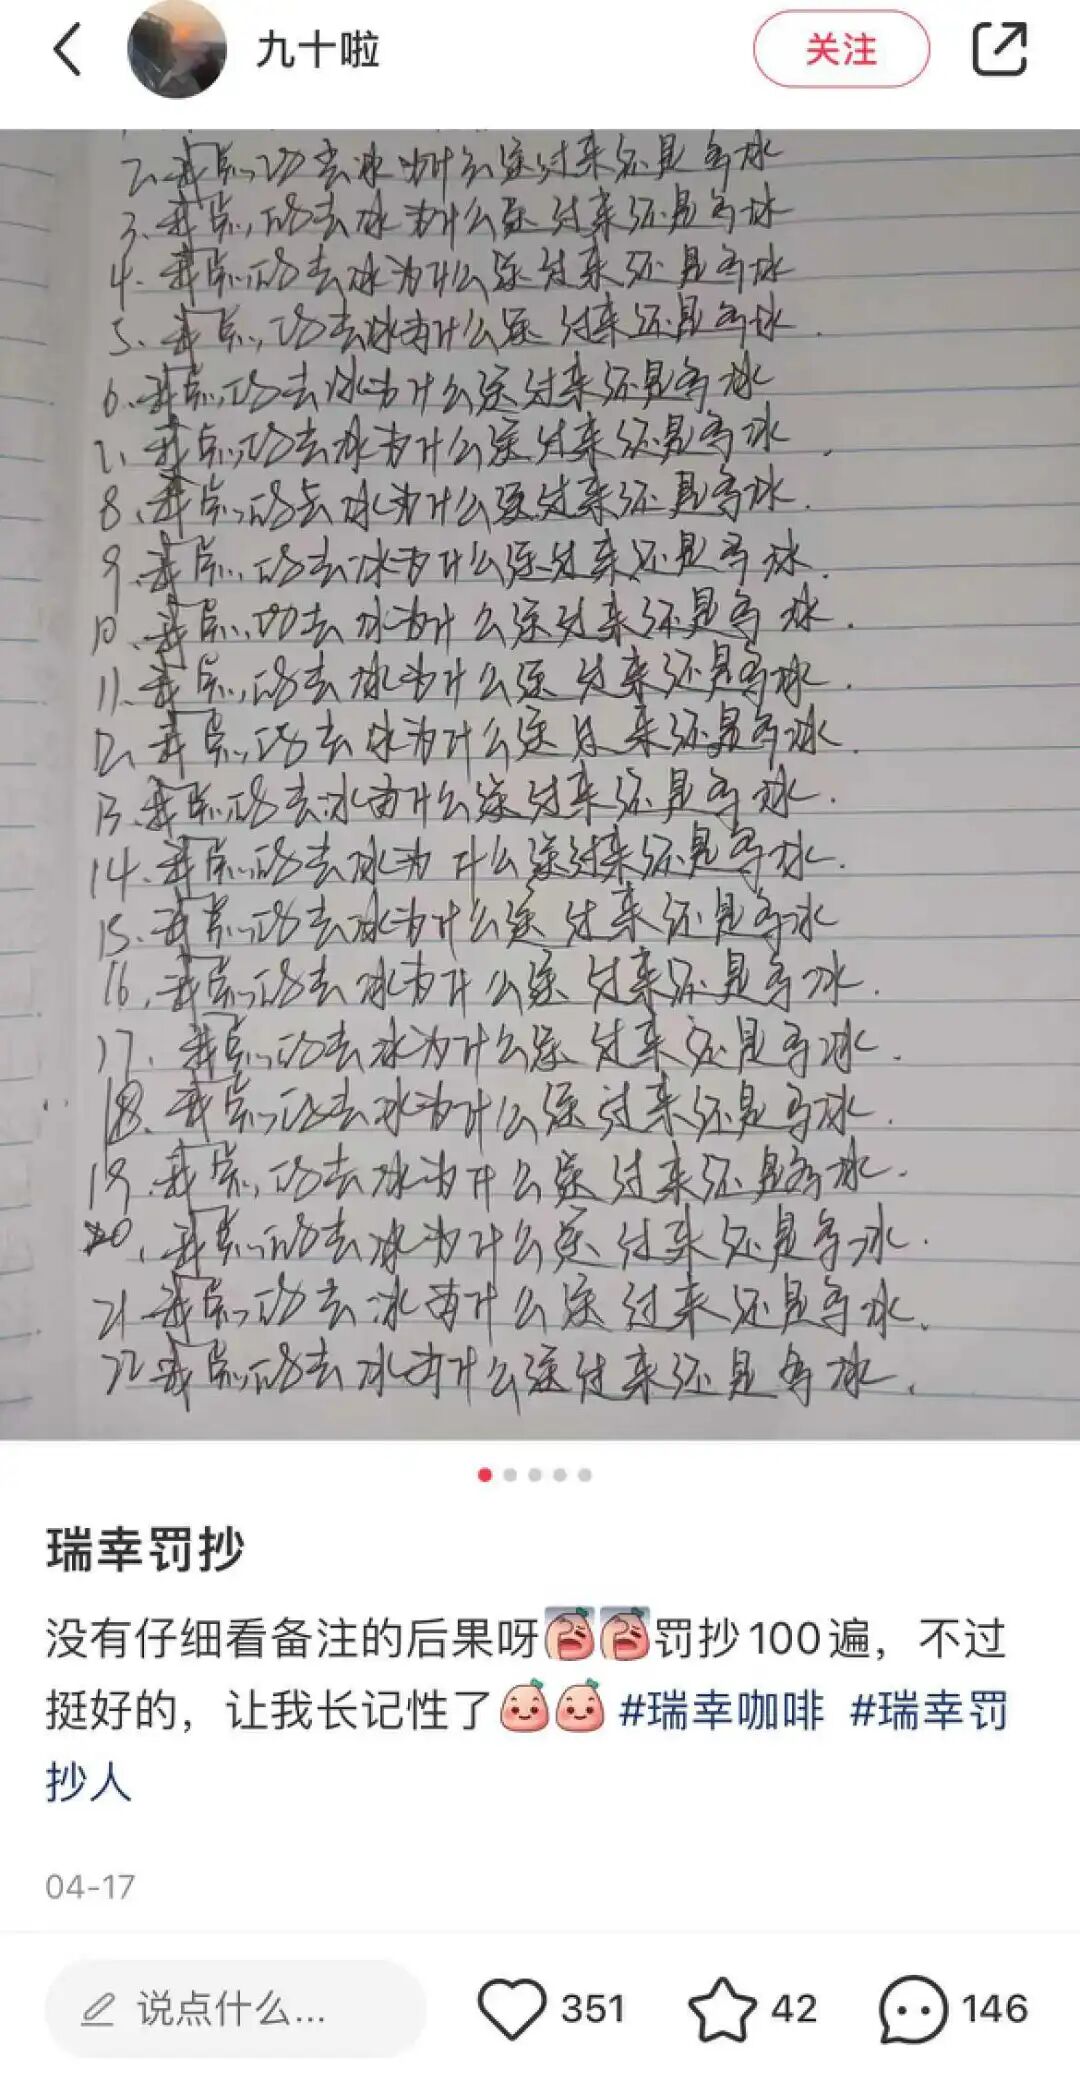 九十啦
关注
2. 我点的去冰为什么送过来还是多冰
3. 我点的去冰为什么送过来还是多冰
4. 我点的去冰为什么送过来还是多冰
5. 我点的去冰为什么送过来还是多冰.
6. 我点的去冰为什么送过来还是多冰
7. 我点的去冰为什么送过来还是多冰.
8. 我点的去冰为什么送过来还是多冰.
9. 我点的去冰为什么送过来还是多冰.
10. 我点的去冰为什么送过来还是多冰.
11. 我点的去冰为什么送过来还是多冰.
12. 我点的去冰为什么送过来还是多冰.
13. 我点的去冰为什么送过来还是多冰.
14. 我点的去冰为什么送过来还是多冰.
15. 我点的去冰为什么送过来还是多冰
16. 我点的去冰为什么送过来还是多冰.
17. 我点的去冰为什么送过来还是多冰.
18. 我点的去冰为什么送过来还是多冰.
19. 我点的去冰为什么送过来还是多冰.
20. 我点的去冰为什么送过来还是多冰.
21. 我点的去冰为什么送过来还是多冰.
22 我点的去冰为什么送过来还是多冰.
瑞幸罚抄
没有仔细看备注的后果呀罚抄100遍，不过
挺好的，让我长记性了 #瑞幸咖啡 #瑞幸罚
抄人
04-17
说点什么...
351
42
146